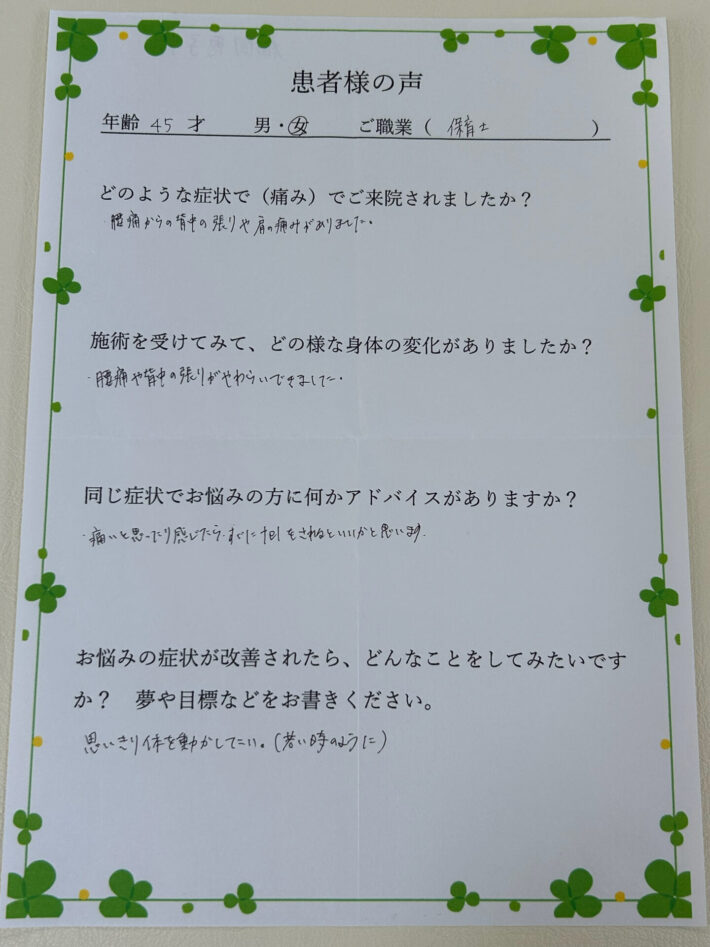 患者様の声
年齢 45 才 男・女 ご職業 ( 保育士 )
どのような症状で（痛み）でご来院されましたか？
・腰痛からの背中の張りや肩の痛みがありました。
施術を受けてみて、どの様な身体の変化がありましたか？
・腰痛や背中の張りがやわらいできました。
同じ症状でお悩みの方に何かアドバイスがありますか？
・痛いと思ったり感じたら、すぐに tel をされるといいかと思います。
お悩みの症状が改善されたら、どんなことをしてみたいです
か？　夢や目標などをお書きください。
思いきり体を動かしてたい。（若い時のように）